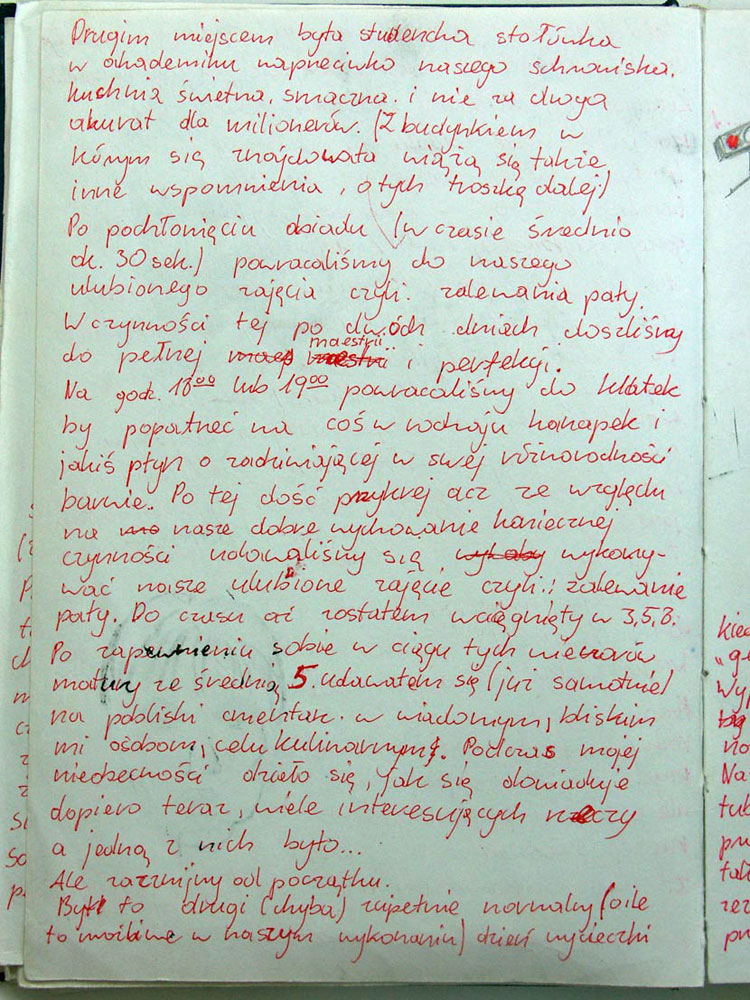 Drugim miejscem była studencka stołówka
w akademiku naprzeciwko naszego schroniska.
kuchnia świetna, smaczna. i nie za droga
akurat dla milionerów. (Z budynkiem w
kórym się znajdowała wiążą się także
inne wspomnienia, o tych troszkę dalej)
Po pochłonięciu obiadu (w czasie średnio
ok. 30 sek.) powracaliśmy do naszego
ulubionego zajęcia czyli: zalewania pały.
W czynności tej po dwóch dniach doszliśmy
do pełnej maestrii i perfekcji.
Na godz. 18⁰⁰ lub 19⁰⁰ powracaliśmy do klatek
by popatrzeć na coś w rodzaju kanapek i
jakiś płyn o zadziwiającej w swej różnorodności
barwie.. Po tej dość przykrej acz ze względu
na nasze dobre wychowanie koniecznej
czynności udawaliśmy się wykony-
wać nasze ulubione zajęcie czyli: zalewanie
pały. Do czasu aż zostałem wciągnięty w 3,5,8.
Po zapewnieniu sobie w ciągu tych wieczorów
matury ze średnią 5. udawałem się (już samotnie)
na pobliski cmentarz. w wiadomym, bliskim
mi osobom, celu kulinarnym. Podczas mojej
nieobecności działo się, jak się dowiaduje
dopiero teraz, wiele interesujących rzeczy
a jedną z nich było...
Ale zacznijmy od początku.
Był to drugi (chyba) zupełnie normalny (o ile
to możliwe w naszym wykonaniu) dzień wycieczki
kied
"g
Wy
no
Na
tub
prz
tal
zez
pr